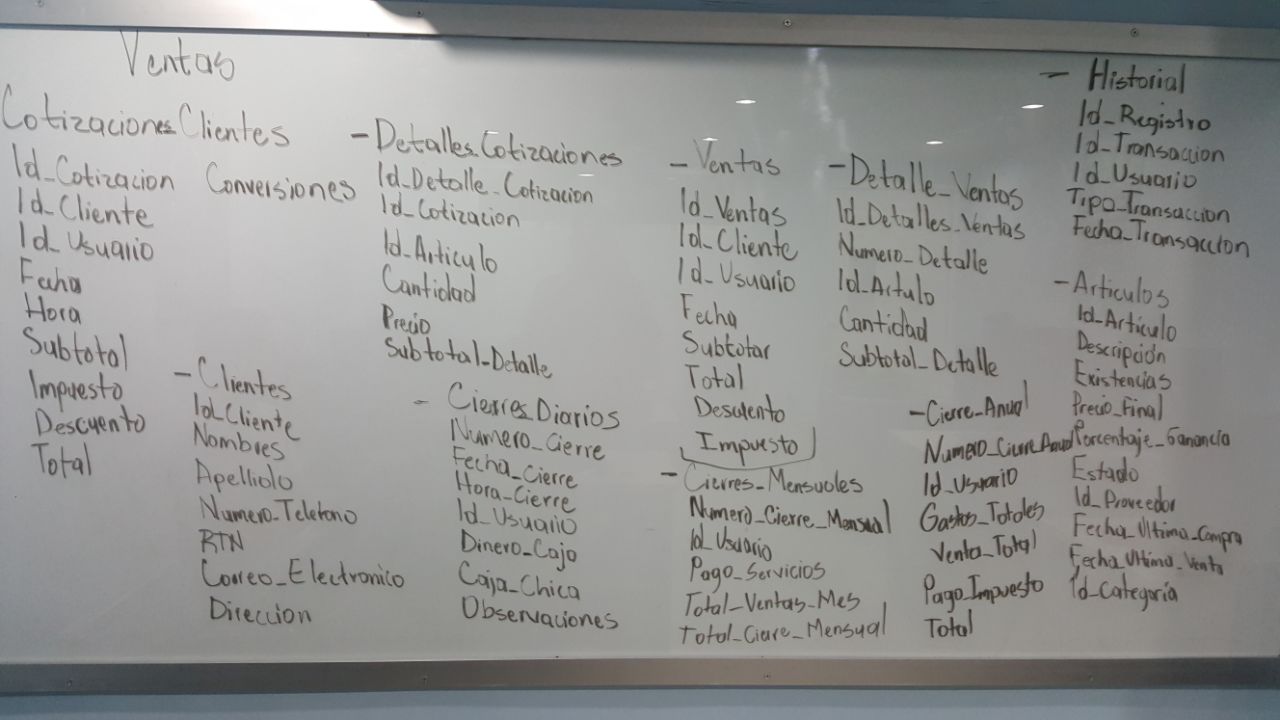 Ventas
Cotizaciones Clientes
Id_Cotizacion
Id_Cliente
Id_Usuario
Fecha
Hora
Subtotal
Impuesto
Descuento
Total
Conversiones
- Clientes
Id_Cliente
Nombres
Apellido
Numero_Telefono
RTN
Correo_Electronico
Direccion
- Detalles_Cotizaciones
Id_Detalle_Cotizacion
Id_Cotizacion
Id_Articulo
Cantidad
Precio
Subtotal_Detalle
- Cierres_Diarios
Numero_Cierre
Fecha_Cierre
Hora_Cierre
Id_Usuario
Dinero_Caja
Caja_Chica
Observaciones
- Ventas
Id_Ventas
Id_Cliente
Id_Usuario
Fecha
Subtotal
Total
Descuento
Impuesto
- Cierres_Mensuales
Numero_Cierre_Mensual
Id_Usuario
Pago_Servicios
Total_Ventas_Mes
Total_Ciere_Mensual
- Detalle_Ventas
Id_Detalles_Ventas
Numero_Detalle
Id_Artulo
Cantidad
Subtotal_Detalle
- Cierre_Anual
Numero_Cierre_Anual
Id_Usuario
Gastos_Totales
Venta_Total
Pago_Impuesto
Total
- Historial
Id_Registro
Id_Transaccion
Id_Usuario
Tipo_Transaccion
Fecha_Transaccion
- Articulos
Id_Articulo
Descripción
Existencias
Precio_Final
Porcentaje_Ganancia
Estado
Id_Proveedor
Fecha_Ultima_Compra
Fecha_Ultima_Venta
Id_Categoría